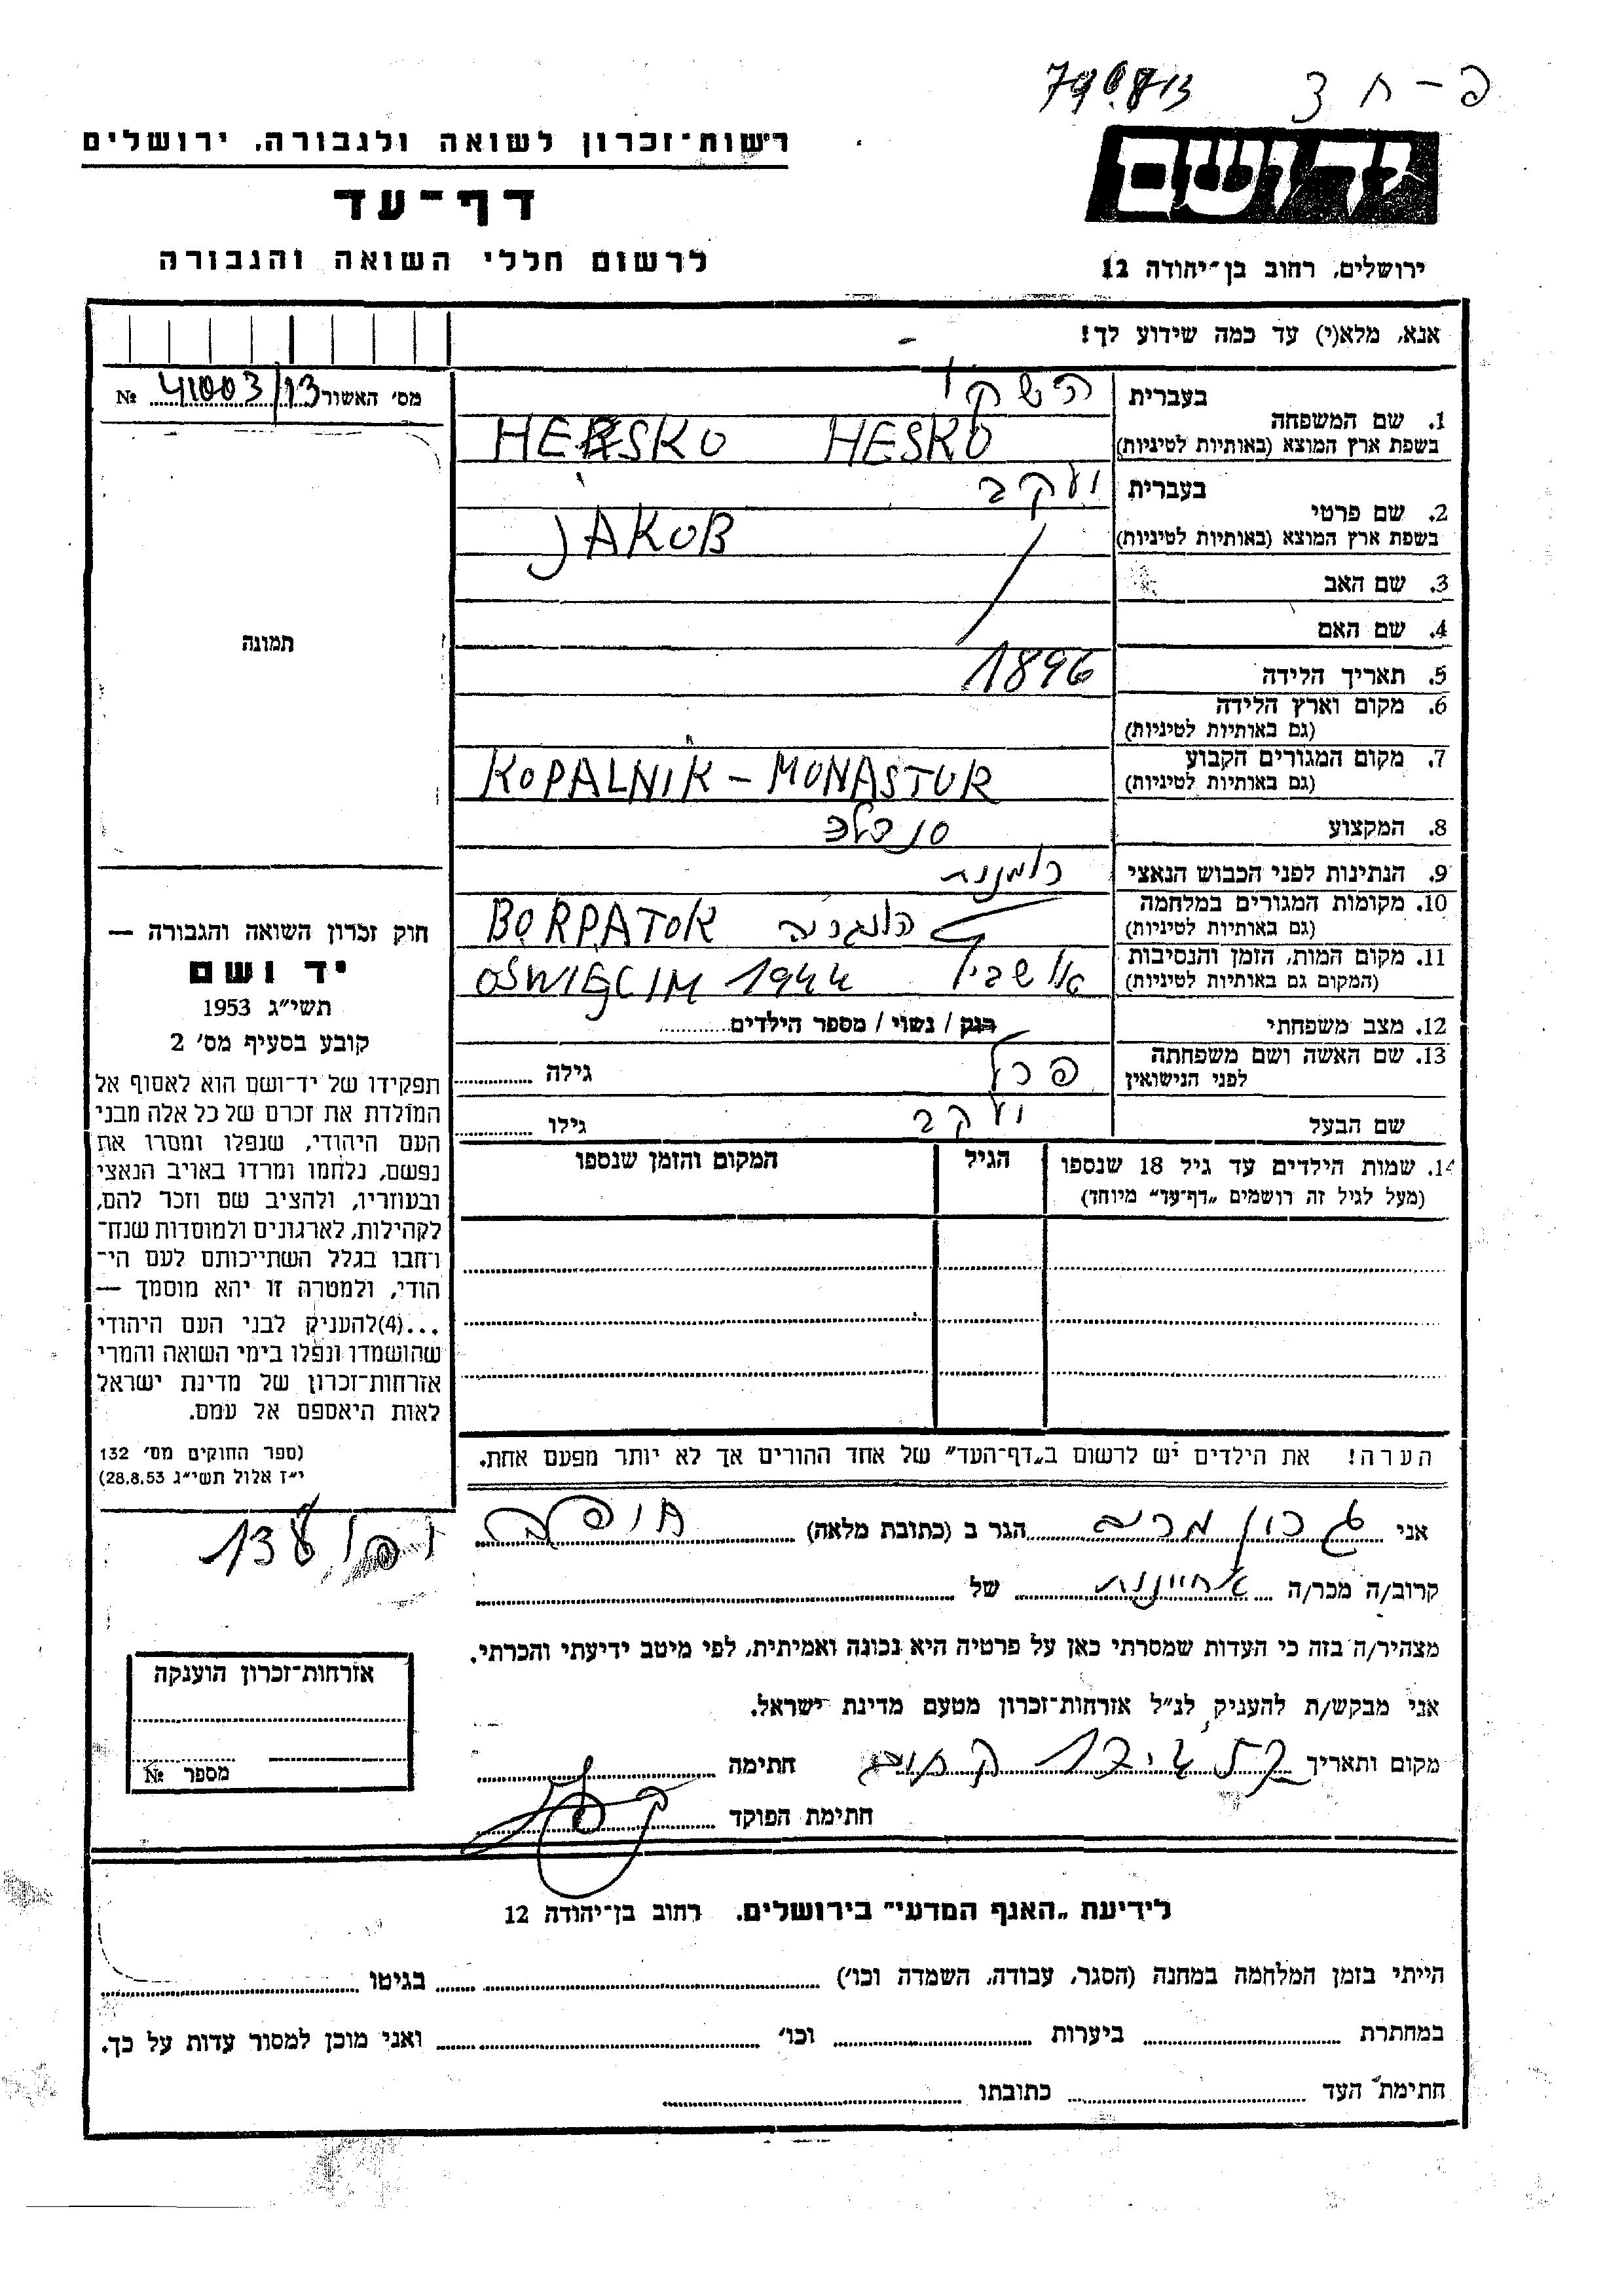 790813 פ-ח 3
רשות־זכרון לשואה ולגבורה, ירושלים
יד ושם
דף־עד
לרשום חללי השואה והגבורה
ירושלים, רחוב בן־יהודה 12
אנא, מלא(י) עד כמה שידוע לך!
מס׳ האשור 41003/13 №
בעברית
1. שם המשפחה
בשפת ארץ המוצא (באותיות לטיניות) HERSKO HESKO
בעברית יעקב
2. שם פרטי
בשפת ארץ המוצא (באותיות לטיניות) JAKOB
3. שם האב
4. שם האם
תמונה
5. תאריך הלידה 1896
6. מקום וארץ הלידה
(גם באותיות לטיניות)
7. מקום המגורים הקבוע KOPALNIK - MONASTUR
(גם באותיות לטיניות)
8. המקצוע סנדלר
9. הנתינות לפני הכבוש הנאצי רומנית
10. מקומות המגורים במלחמה BORPATOK הונגריה
(גם באותיות לטיניות)
11. מקום המות, הזמן והנסיבות אושביץ OŚWIĘCIM 1944
(המקום גם באותיות לטיניות)
12. מצב משפחתי רוק / נשוי / מספר הילדים
13. שם האשה ושם משפחתה פרל גילה
לפני הנישואין
שם הבעל יעקב גילו
14. שמות הילדים עד גיל 18 שנספו הגיל המקום והזמן שנספו
(מעל לגיל זה רושמים „דף־עד” מיוחד)
חוק זכרון השואה והגבורה —
יד ושם
תשי״ג 1953
קובע בסעיף מס׳ 2
תפקידו של יד־ושם הוא לאסוף אל
המולדת את זכרם של כל אלה מבני
העם היהודי, שנפלו ומסרו את
נפשם, נלחמו ומרדו באויב הנאצי
ובעוזריו, ולהציב שם וזכר להם,
לקהילות, לארגונים ולמוסדות שנח־
רחבו בגלל השתייכותם לעם הי־
הודי, ולמטרה זו יהא מוסמך —
...(4)להעניק לבני העם היהודי
שהושמדו ונפלו בימי השואה והמרי
אזרחות־זכרון של מדינת ישראל
לאות היאספם אל עמם.
(ספר החוקים מס׳ 132
י״ז אלול תשי״ג 28.8.53)
הערה! את הילדים יש לרשום ב„דף־העד” של אחד ההורים אך לא יותר מפעם אחת.
אני מרים הגר ב (כתובת מלאה)
138
קרוב/ה מכר/ה אחיינית של
מצהיר/ה בזה כי העדות שמסרתי כאן על פרטיה היא נכונה ואמיתית, לפי מיטב ידיעתי והכרתי.
אני מבקש/ת להעניק לנ״ל אזרחות־זכרון מטעם מדינת ישראל.
מקום ותאריך חתימה
חתימת הפוקד
אזרחות־זכרון הוענקה
מספר №
לידיעת „האגף המדעי” בירושלים, רחוב בן־יהודה 12
הייתי בזמן המלחמה במחנה (הסגר, עבודה, השמדה וכו׳) בגיטו
במחתרת ביערות וכו׳ ואני מוכן למסור עדות על כך.
חתימת העד כתובתו